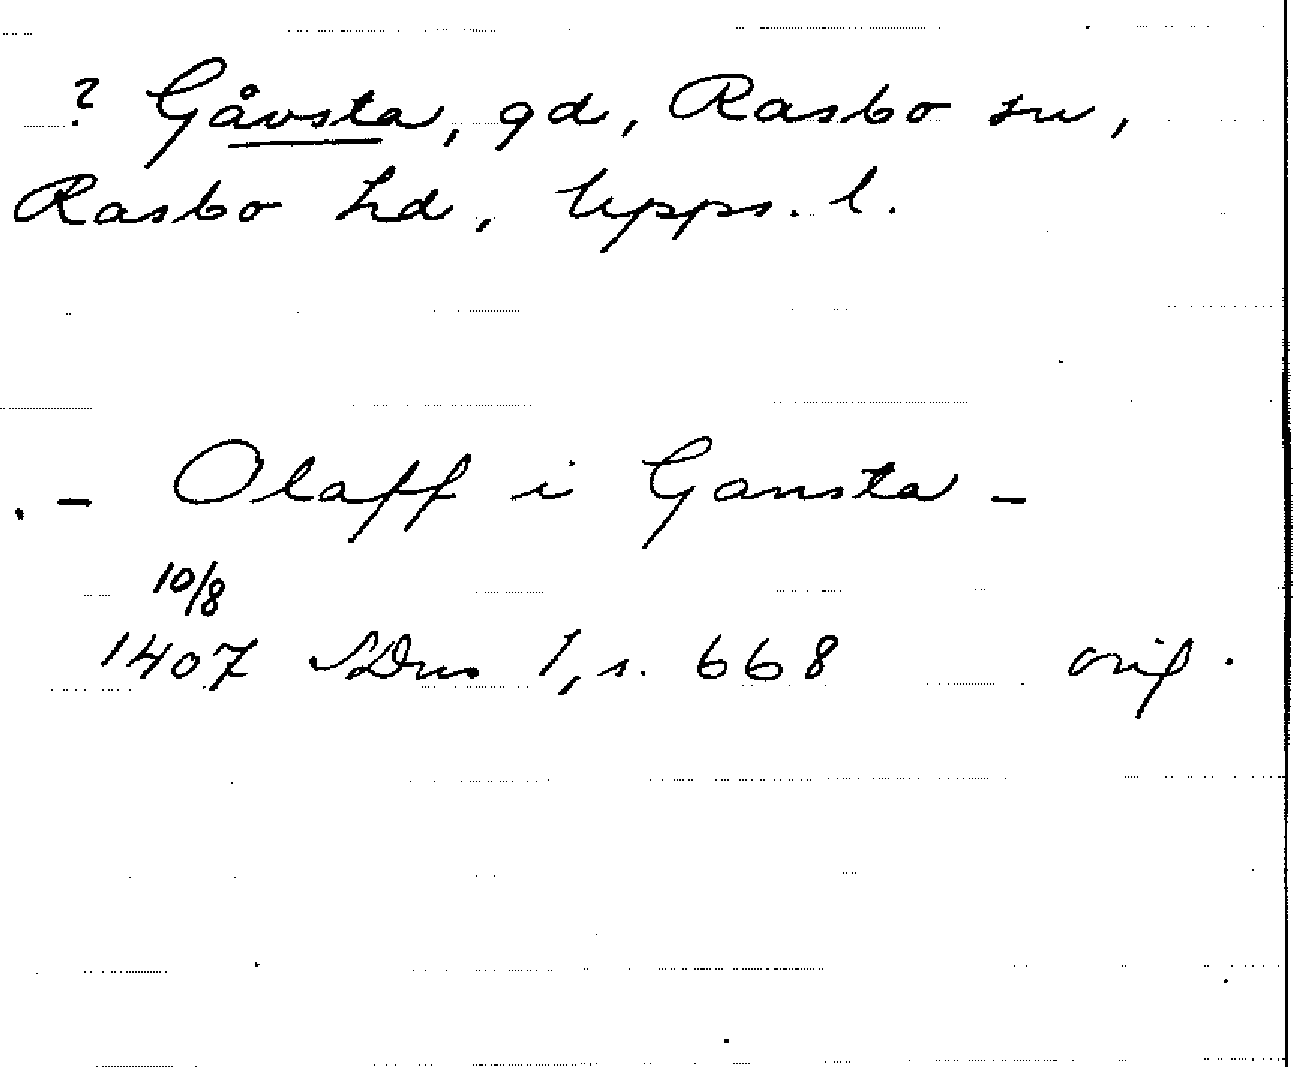 ? Gåvsta, gd, Rasbo sn,
Rasbo hd, Upps. l.
- Olaff i Gansta -
10/8
1407 SDns 1, s. 668 orig.